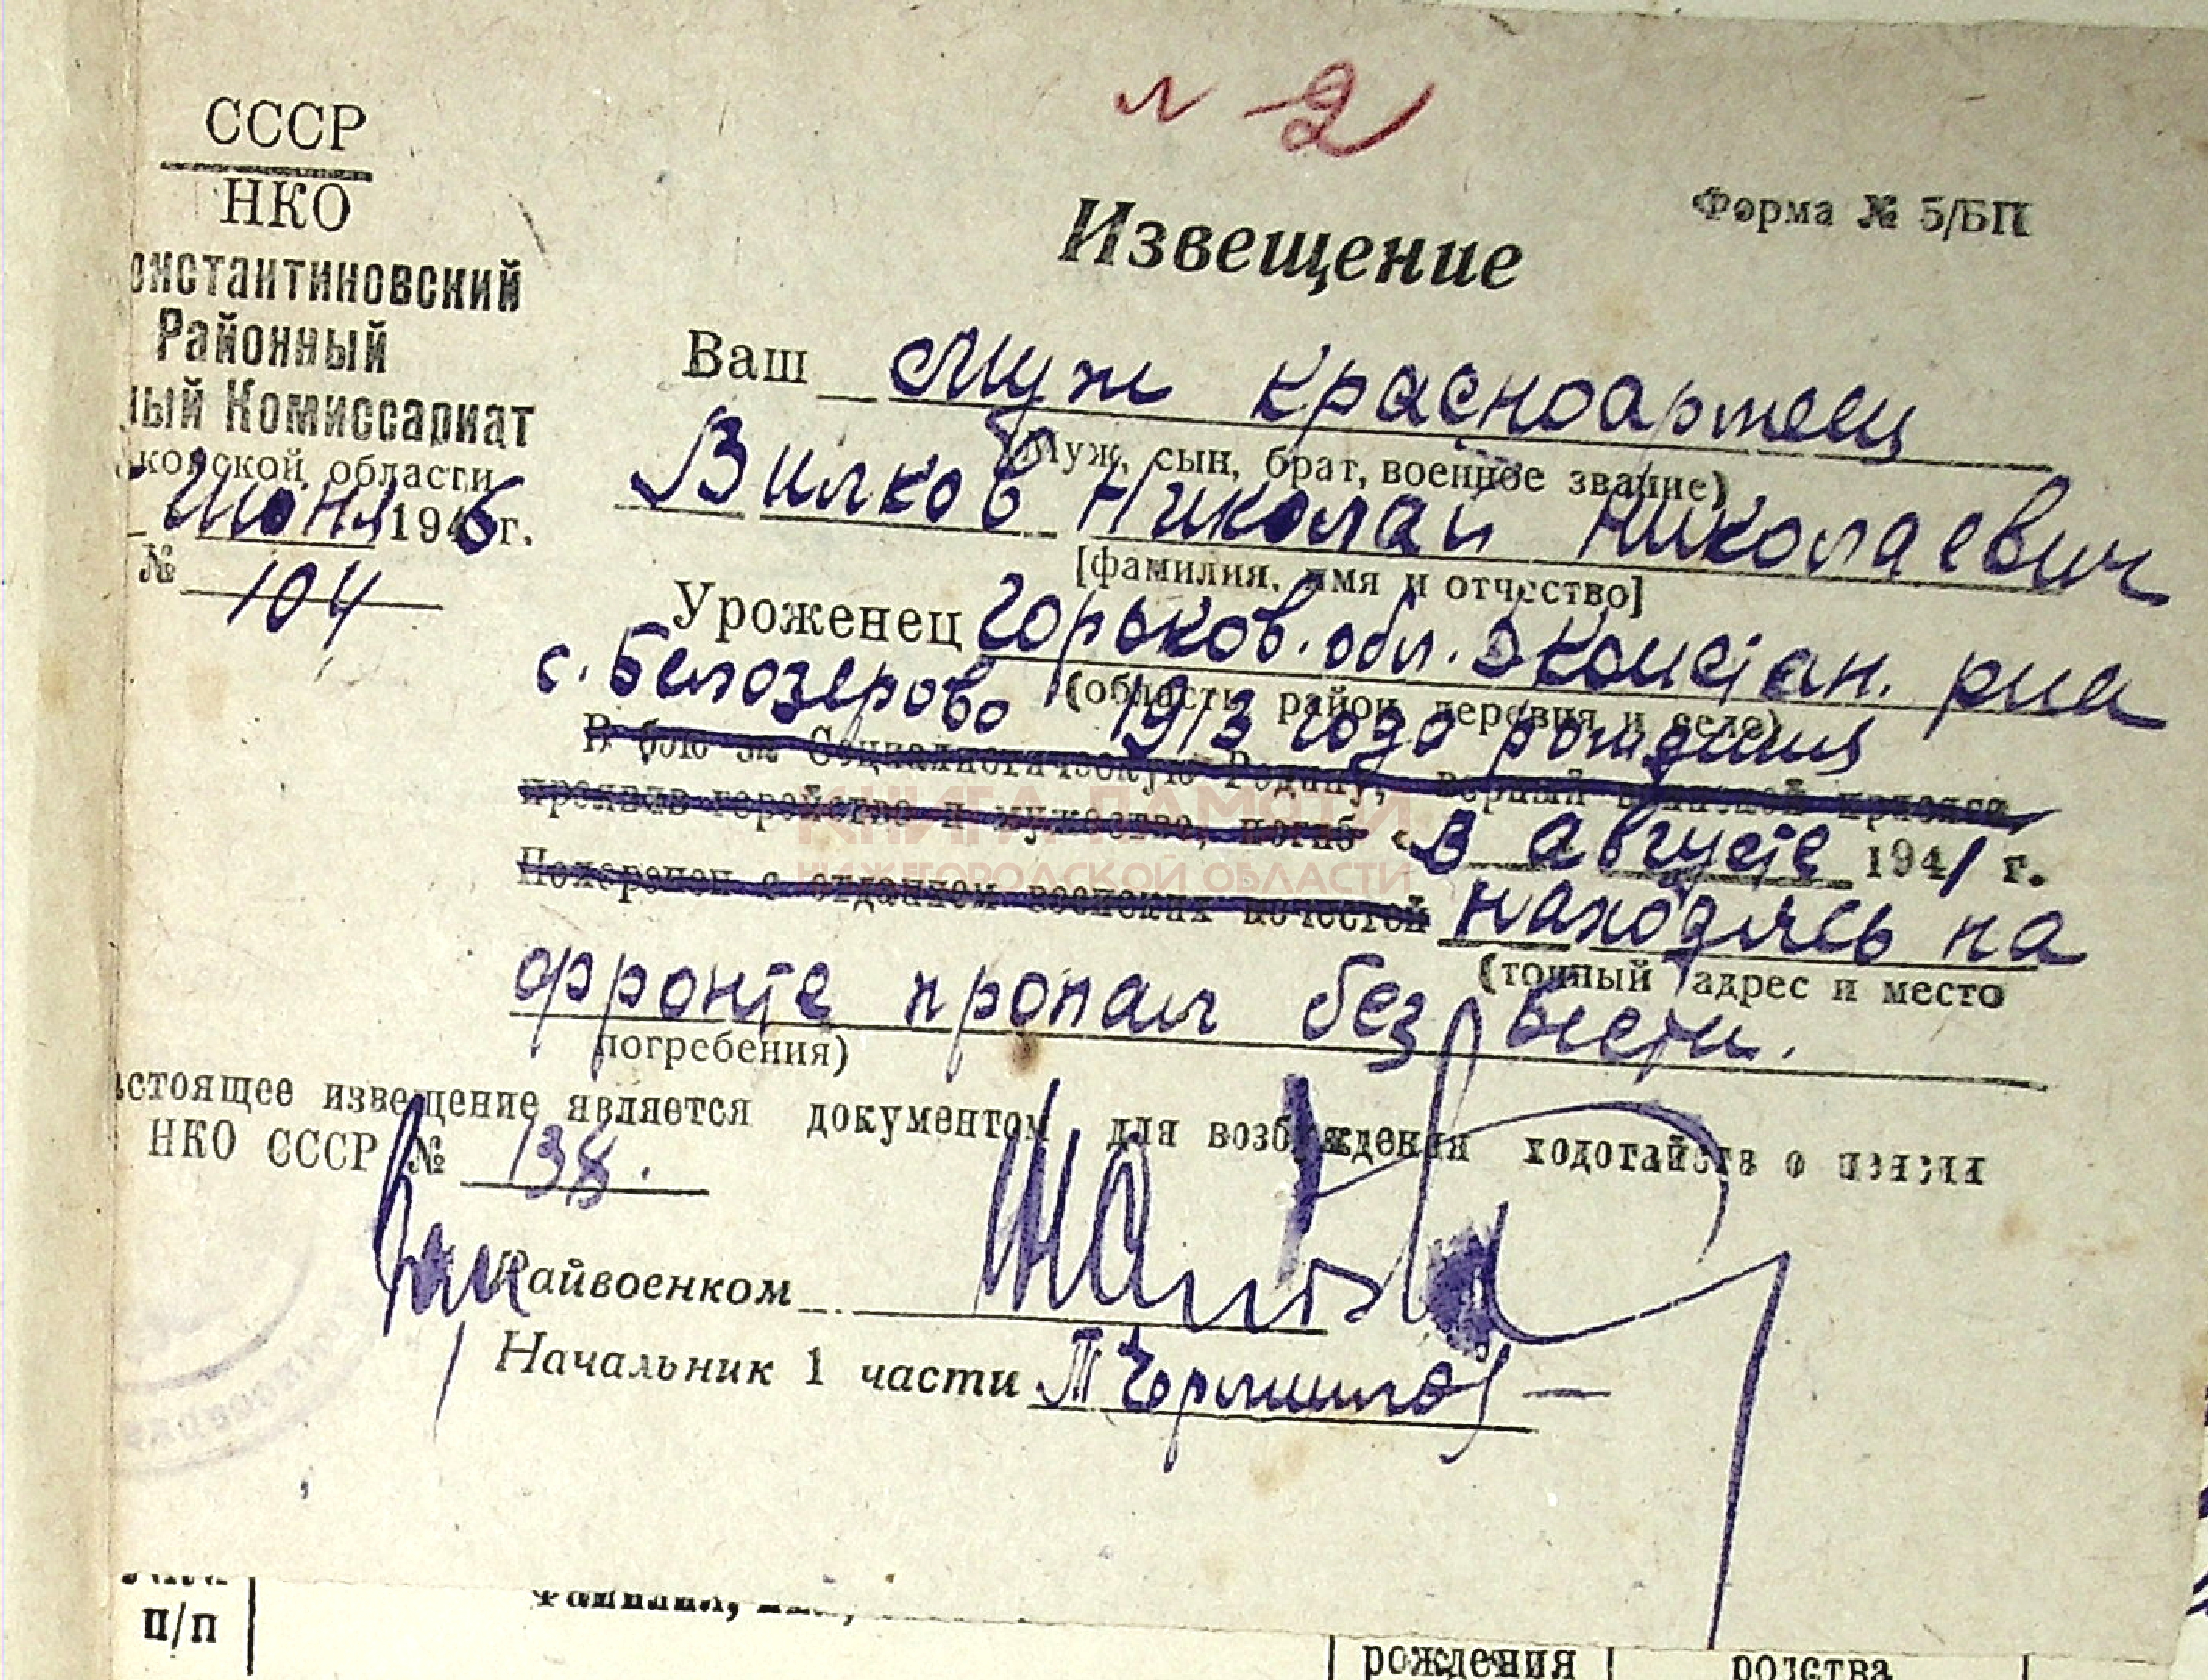 № 2
СССР
НКО
онстантиновский
Районный
ный Комиссариат
ковской области
Июня 1946 г.
№ 104
Форма № 5/БП
Извещение
Ваш Муж красноармеец
(Муж, сын, брат, военное звание)
Вилков Николай Николаевич
[фамилия, имя и отчество]
Уроженец Горьков. обл. Дконстан. рна
(область, район, деревня и село)
с. Белозерово 1913 года рождения
В бою за Социалистическую Родину, верный воинской присяге,
проявив геройство и мужество, погиб « в августе 1941 г.
Похоронен с отданием воинских почестей находясь на
(точный адрес и место
фронте пропал без вести.
погребения)
астоящее извещение является документом для возбуждения ходотайств о пенсии
НКО СССР № 138.
Райвоенком
Начальник 1 части
КНИГА ПАМЯТИ
НИЖЕГОРОДСКОЙ ОБЛАСТИ
п/п
рождения
родства